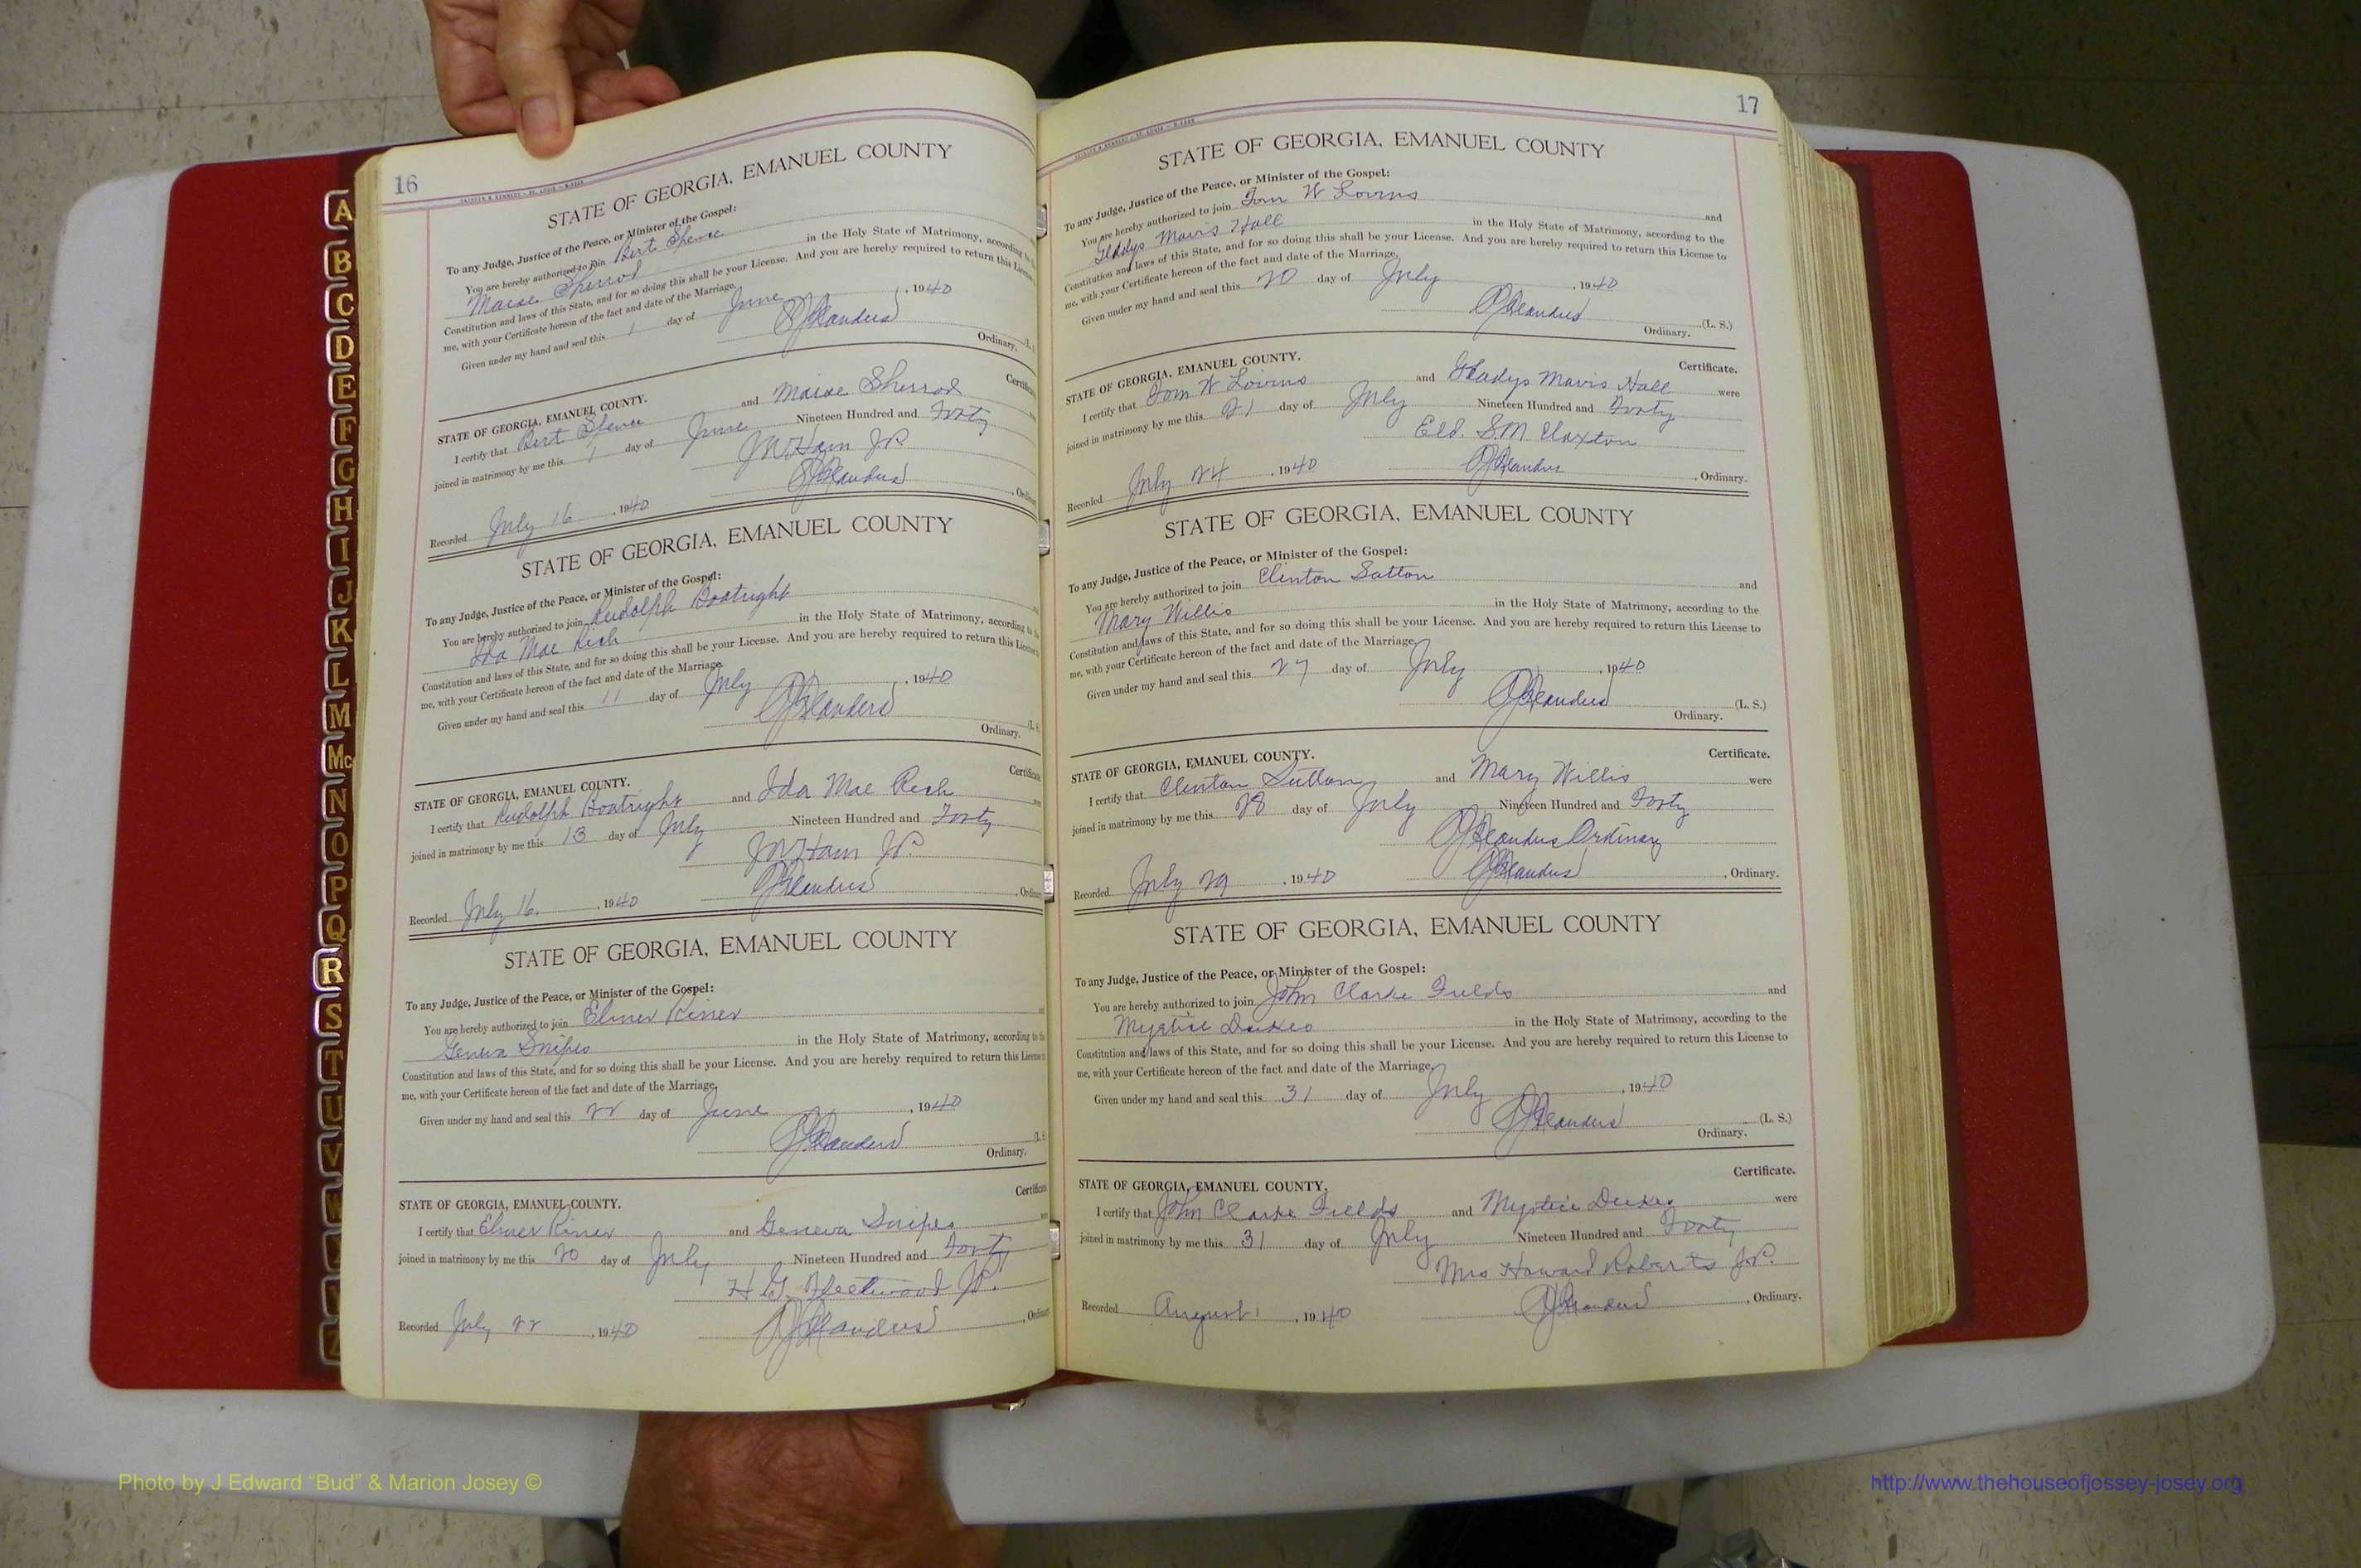 16
STATE OF GEORGIA, EMANUEL COUNTY
To any Judge, Justice of the Peace, or Minister of the Gospel:
You are hereby authorized to join Bert Spence
Maixe Sherrod in the Holy State of Matrimony, according to
Constitution and laws of this State, and for so doing this shall be your License. And you are hereby required to return this License
me, with your Certificate hereon of the fact and date of the Marriage.
Given under my hand and seal this 1 day of June, 1940
Ordinary.
STATE OF GEORGIA, EMANUEL COUNTY.
I certify that Bert Spence and Maixe Sherrod
joined in matrimony by me this 1 day of June Nineteen Hundred and Forty
Ham J.P.
Recorded July 16, 1940
STATE OF GEORGIA, EMANUEL COUNTY
To any Judge, Justice of the Peace, or Minister of the Gospel:
You are hereby authorized to join Rudolph Boatright
Ida Mae Rich in the Holy State of Matrimony, according to
Constitution and laws of this State, and for so doing this shall be your License. And you are hereby required to return this License
me, with your Certificate hereon of the fact and date of the Marriage.
Given under my hand and seal this 11 day of July, 1940
Ordinary.
Certificate
STATE OF GEORGIA, EMANUEL COUNTY.
I certify that Rudolph Boatright and Ida Mae Rich
joined in matrimony by me this 13 day of July Nineteen Hundred and Forty
Ham J.P.
Recorded July 16, 1940
STATE OF GEORGIA, EMANUEL COUNTY
To any Judge, Justice of the Peace, or Minister of the Gospel:
You are hereby authorized to join Elmer Riner
Geneva Snipes in the Holy State of Matrimony, according to the
Constitution and laws of this State, and for so doing this shall be your License. And you are hereby required to return this License to
me, with your Certificate hereon of the fact and date of the Marriage.
Given under my hand and seal this 22 day of June, 1940
Ordinary.
Certificate
STATE OF GEORGIA, EMANUEL COUNTY.
I certify that Elmer Riner and Geneva Snipes
joined in matrimony by me this 20 day of July Nineteen Hundred and Forty
H G Fleetwood J.P.
Recorded July 22, 1940
17
STATE OF GEORGIA, EMANUEL COUNTY
To any Judge, Justice of the Peace, or Minister of the Gospel:
You are hereby authorized to join Tom W Lovins and
Gladys Mavis Hall in the Holy State of Matrimony, according to the
Constitution and laws of this State, and for so doing this shall be your License. And you are hereby required to return this License to
me, with your Certificate hereon of the fact and date of the Marriage.
Given under my hand and seal this 20 day of July, 1940
(L. S.)
Ordinary.
Certificate.
STATE OF GEORGIA, EMANUEL COUNTY.
I certify that Tom W Lovins and Gladys Mavis Hall were
joined in matrimony by me this 21 day of July Nineteen Hundred and Forty
Eld. S.M. Claxton
Recorded July 24, 1940, Ordinary.
STATE OF GEORGIA, EMANUEL COUNTY
To any Judge, Justice of the Peace, or Minister of the Gospel:
You are hereby authorized to join Clinton Sutton and
Mary Willis in the Holy State of Matrimony, according to the
Constitution and laws of this State, and for so doing this shall be your License. And you are hereby required to return this License to
me, with your Certificate hereon of the fact and date of the Marriage.
Given under my hand and seal this 27 day of July, 1940
(L. S.)
Ordinary.
Certificate.
STATE OF GEORGIA, EMANUEL COUNTY.
I certify that Clinton Sutton and Mary Willis were
joined in matrimony by me this 28 day of July Nineteen Hundred and Forty
Ordinary
Recorded July 29, 1940, Ordinary.
STATE OF GEORGIA, EMANUEL COUNTY
To any Judge, Justice of the Peace, or Minister of the Gospel:
You are hereby authorized to join John Clarke Fields and
Myrtice Dukes in the Holy State of Matrimony, according to the
Constitution and laws of this State, and for so doing this shall be your License. And you are hereby required to return this License to
me, with your Certificate hereon of the fact and date of the Marriage.
Given under my hand and seal this 31 day of July, 1940
(L. S.)
Ordinary.
Certificate.
STATE OF GEORGIA, EMANUEL COUNTY.
I certify that John Clarke Fields and Myrtice Dukes were
joined in matrimony by me this 31 day of July Nineteen Hundred and Forty
Mrs Howard Roberts J.P.
Recorded August 1, 1940, Ordinary.
A
B
C
D
E
F
G
H
I
J
K
L
M
Mc
N
O
P
Q
R
S
T
U
V
Photo by J Edward “Bud” & Marion Josey ©
http://www.thehouseofjossey-josey.org